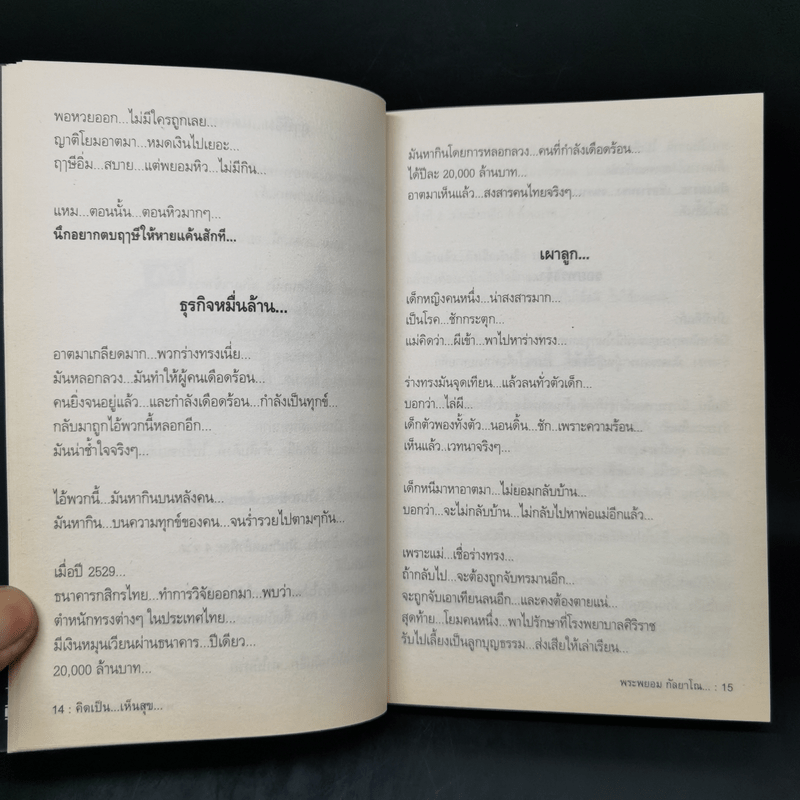 พอหวยออก...ไม่มีใครถูกเลย...
ญาติโยมอาตมา...หมดเงินไปเยอะ...
ฤๅษีอิ่ม...สบาย...แต่พยอมหิว...ไม่มีกิน...
แหม...ตอนนั้น...ตอนหิวมากๆ...
นึกอยากตบฤๅษีให้หายแค้นสักที...
ธุรกิจหมื่นล้าน...
อาตมาเกลียดมาก...พวกร่างทรงเนี่ย...
มันหลอกลวง...มันทำให้ผู้คนเดือดร้อน...
คนยิ่งจนอยู่แล้ว...และกำลังเดือดร้อน...กำลังเป็นทุกข์...
กลับมาถูกไอ้พวกนี้หลอกอีก...
มันน่าช้ำใจจริงๆ...
ไอ้พวกนี้...มันหากินบนหลังคน...
มันหากิน...บนความทุกข์ของคน...จนร่ำรวยไปตามๆกัน...
เมื่อปี 2529...
ธนาคารกสิกรไทย...ทำการวิจัยออกมา...พบว่า...
ตำหนักทรงต่างๆ ในประเทศไทย...
มีเงินหมุนเวียนผ่านธนาคาร...ปีเดียว...
20,000 ล้านบาท...
14 : คิดเป็น...เห็นสุข...
มันหากินโดยการหลอกลวง...คนที่กำลังเดือดร้อน...
ได้ปีละ 20,000 ล้านบาท...
อาตมาเห็นแล้ว...สงสารคนไทยจริงๆ...
เผาลูก...
เด็กหญิงคนหนึ่ง...น่าสงสารมาก...
เป็นโรค...ชักกระตุก...
แม่คิดว่า...ผีเข้า...พาไปหาร่างทรง...
ร่างทรงมันจุดเทียน...แล้วลนทั่วตัวเด็ก...
บอกว่า...ไล่ผี...
เด็กตัวพองทั้งตัว...นอนดิ้น...ชัก..เพราะความร้อน...
เห็นแล้ว..เวทนาจริงๆ...
เด็กหนีมาหาอาตมา...ไม่ยอมกลับบ้าน...
บอกว่า...จะไม่กลับบ้าน...ไม่กลับไปหาพ่อแม่อีกแล้ว...
เพราะแม่...เชื่อร่างทรง...
ถ้ากลับไป...จะต้องถูกจับทรมานอีก...
จะถูกจับเอาเทียนลนอีก...และคงต้องตายแน่...
สุดท้าย...โยมคนหนึ่ง...พาไปรักษาที่โรงพยาบาลศิริราช
รับไปเลี้ยงเป็นลูกบุญธรรม...ส่งเสียให้เล่าเรียน...
พระพยอม กัลยาโณ... : 15